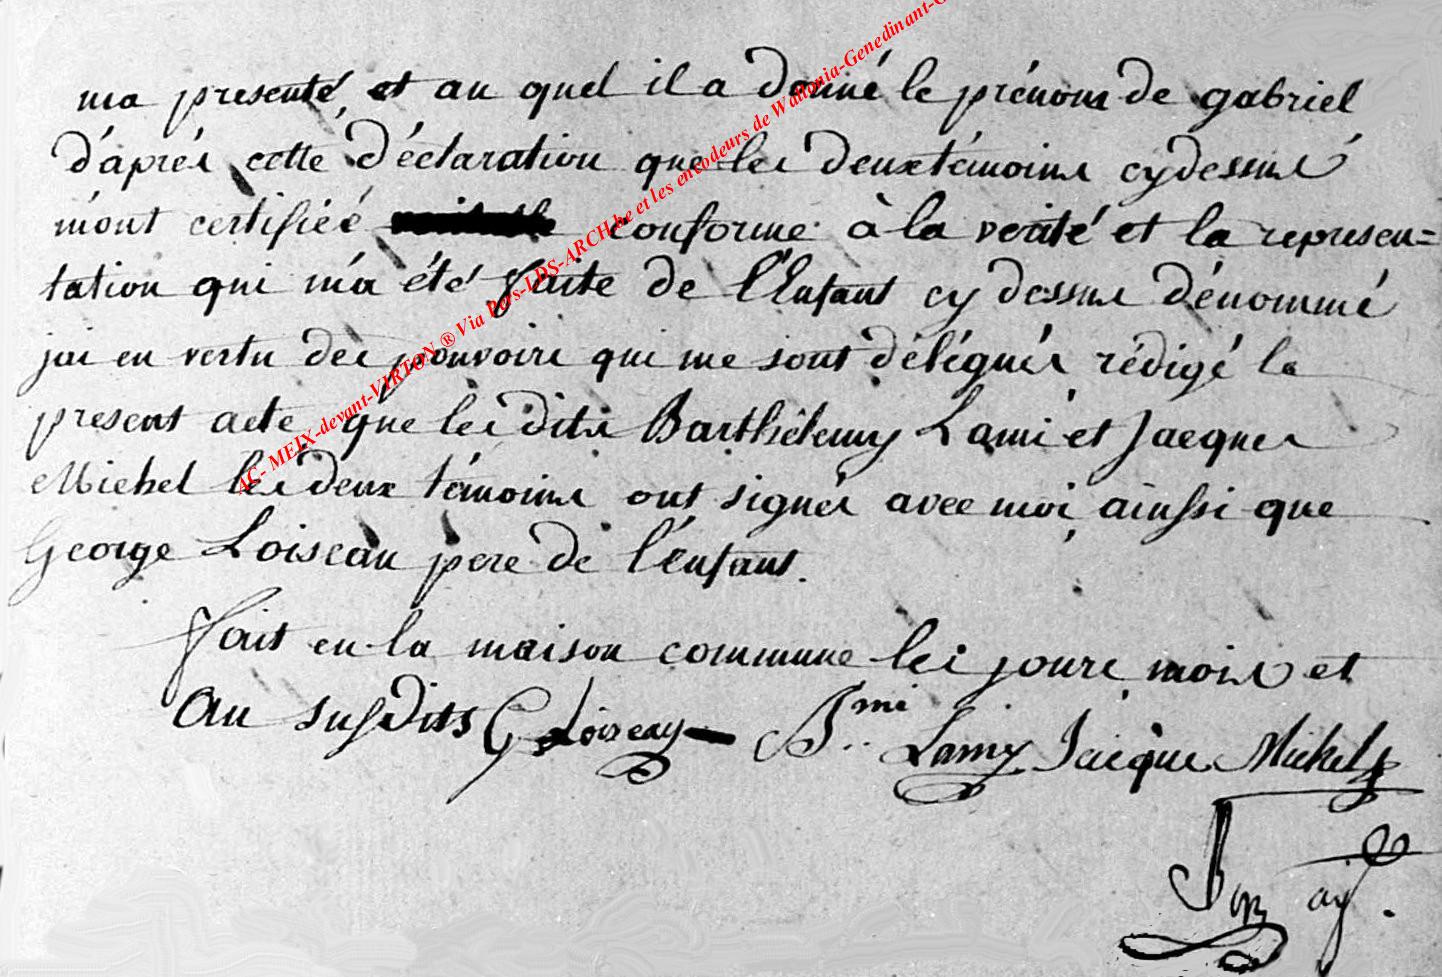 AC- MEIX-devant-VIRTON ® Via Pers-LDS-ARCH.be et les encodeurs de Wallonia-Genedinant-G
ma presenté, et au quel il a donné le prénom de gabriel
d'aprés cette déclaration que les deux témoins cydessus
m'ont certifiéé conforme à la verité et la represen=
tation qui m'a été faite de l'Enfant cy dessus dénommé
jai en vertu des pouvoirs qui me sont délégués rédigé le
present acte que lesdits Barthélemy Lami et Jacques
Michel les deux témoins ont signés avec moi, ainssi que
George Loiseau pere de l'enfant.
Fait en la maison commune les jours mois et
an susdits G Loiseau B.mi Lamy Jacque Michel